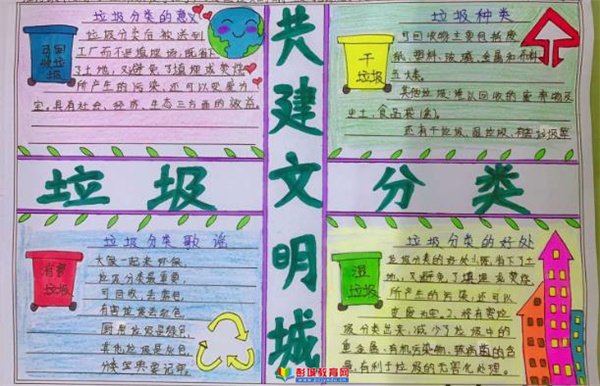 垃圾分类的意义
垃圾分类后被送到
工厂而不是填埋场，既省
了土地，又避免了填埋或焚烧
所产生的污染，还可以变废为
宝。具有社会、经济、生态三方面的效益。
可回收垃圾
共建文明城
垃圾种类
可回收物主要包括废
纸、塑料、玻璃、金属和布料
五大类。
其他垃圾
土、食品袋
还有干垃圾、湿垃圾、有害垃圾等
干垃圾
垃圾
分类
垃圾分类歌谣
大家一起来好保
垃圾分类最重要，
可回收，蓝色包
有害垃圾红色包
厨房垃圾是绿色
其他垃圾是灰色
分类宝典要记得。
有害垃圾
垃圾分类的好处
垃圾分类的好处
地，又避免了填埋或焚烧
所产生的污染，还可以
变废为宝。2、将有害垃
圾分类出来，减少了垃圾中的
重金属、有机污染物、致病菌的含
量，有利于垃圾的无害化处理。
湿垃圾
彭城教育网